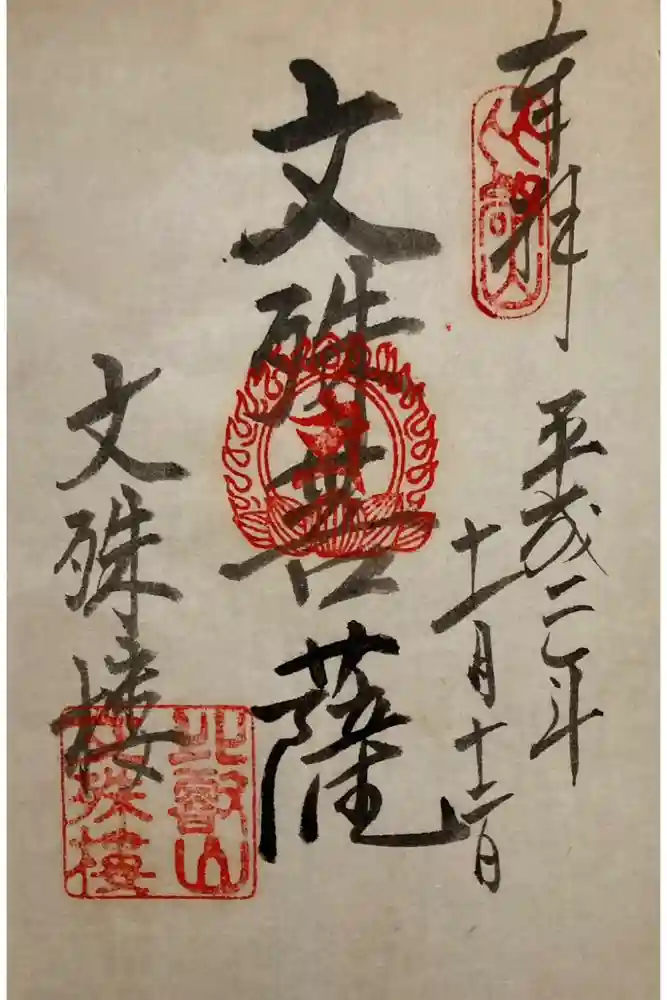 奉拝
平成二年
十一月十二日
文殊菩薩
文殊楼
比叡山
文殊樓